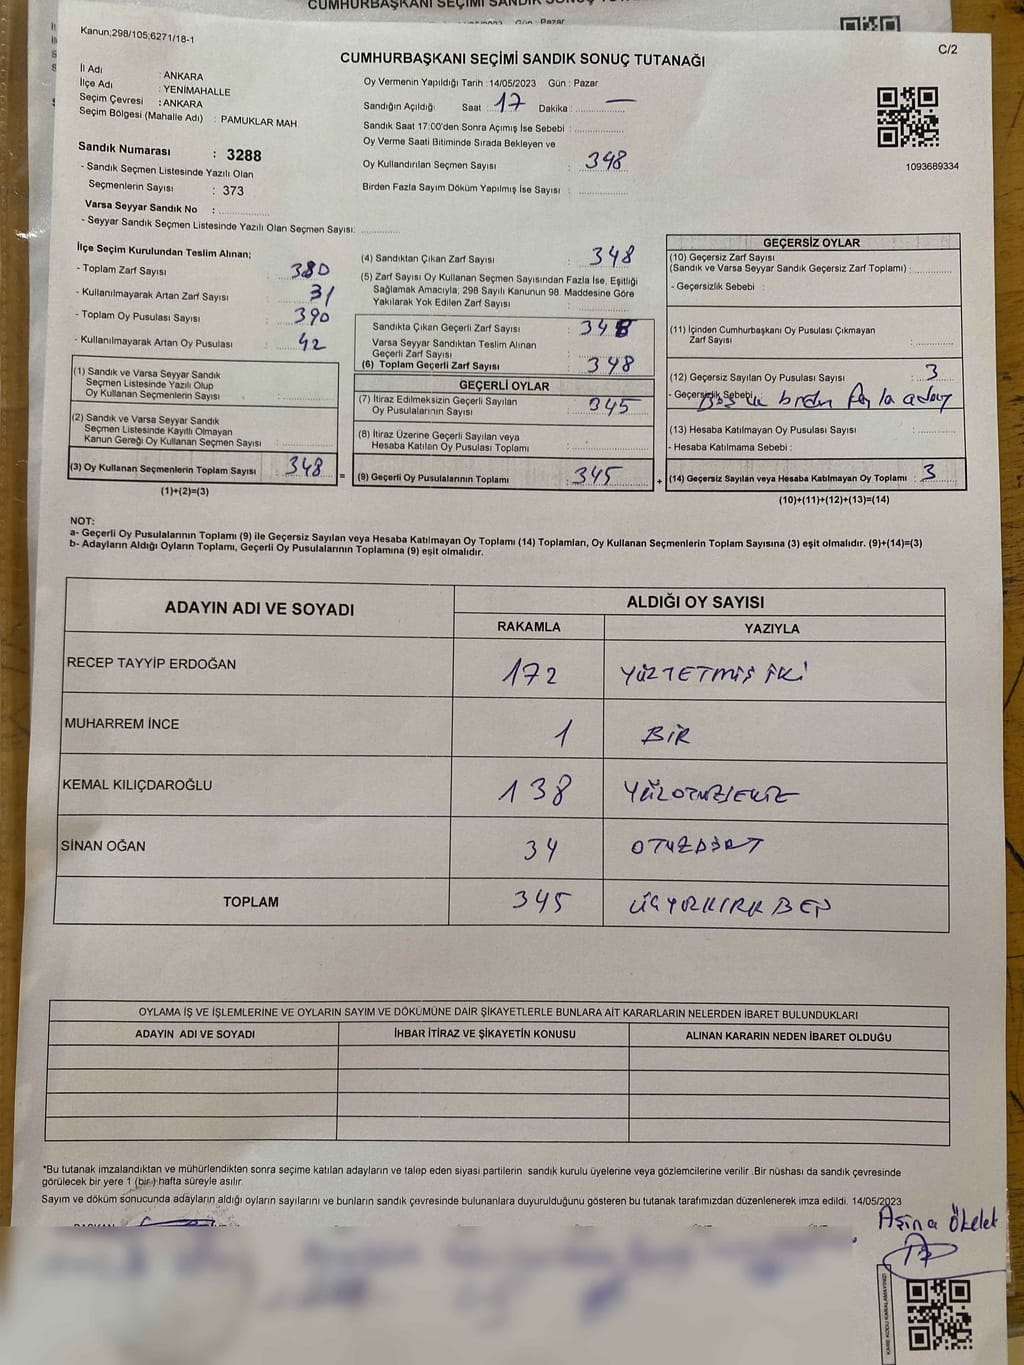 Kanun;298/105;6271/18-1
C/2
CUMHURBAŞKANI SEÇİMİ SANDIK SONUÇ TUTANAĞI
İl Adı : ANKARA
İlçe Adı : YENİMAHALLE
Seçim Çevresi : ANKARA
Seçim Bölgesi (Mahalle Adı) : PAMUKLAR MAH.
Sandık Numarası : 3288
- Sandık Seçmen Listesinde Yazılı Olan
Seçmenlerin Sayısı : 373
Varsa Seyyar Sandık No :
- Seyyar Sandık Seçmen Listesinde Yazılı Olan Seçmen Sayısı:
Oy Vermenin Yapıldığı Tarih : 14/05/2023 Gün : Pazar
Sandığın Açıldığı Saat : 17 Dakika : —
Sandık Saat 17:00'den Sonra Açımış İse Sebebi :
Oy Verme Saati Bitiminde Sırada Bekleyen ve
Oy Kullandırılan Seçmen Sayısı : 348
Birden Fazla Sayım Döküm Yapılmış İse Sayısı :
1093689334
İlçe Seçim Kurulundan Teslim Alınan;
- Toplam Zarf Sayısı : 380
- Kullanılmayarak Artan Zarf Sayısı : 31
- Toplam Oy Pusulası Sayısı : 390
- Kullanılmayarak Artan Oy Pusulası : 42
(1) Sandık ve Varsa Seyyar Sandık
Seçmen Listesinde Yazılı Olup
Oy Kullanan Seçmenlerin Sayısı :
(2) Sandık ve Varsa Seyyar Sandık
Seçmen Listesinde Kayıtlı Olmayan
Kanun Gereği Oy Kullanan Seçmen Sayısı :
(3) Oy Kullanan Seçmenlerin Toplam Sayısı : 348 =
(1)+(2)=(3)
(4) Sandıktan Çıkan Zarf Sayısı : 348
(5) Zarf Sayısı Oy Kullanan Seçmen Sayısından Fazla İse, Eşitliği
Sağlamak Amacıyla; 298 Sayılı Kanunun 98. Maddesine Göre
Yakılarak Yok Edilen Zarf Sayısı :
Sandıkta Çıkan Geçerli Zarf Sayısı : 348
Varsa Seyyar Sandıktan Teslim Alınan
Geçerli Zarf Sayısı :
(6) Toplam Geçerli Zarf Sayısı : 348
GEÇERLİ OYLAR
(7) İtiraz Edilmeksizin Geçerli Sayılan
Oy Pusulalarının Sayısı : 345
(8) İtiraz Üzerine Geçerli Sayılan veya
Hesaba Katılan Oy Pusulası Toplamı :
(9) Geçerli Oy Pusulalarının Toplamı : 345 +
GEÇERSİZ OYLAR
(10) Geçersiz Zarf Sayısı
(Sandık ve Varsa Seyyar Sandık Geçersiz Zarf Toplamı) :
- Geçersizlik Sebebi :
(11) İçinden Cumhurbaşkanı Oy Pusulası Çıkmayan
Zarf Sayısı :
(12) Geçersiz Sayılan Oy Pusulası Sayısı : 3
- Geçersizlik Sebebi : birden fazla aday
(13) Hesaba Katılmayan Oy Pusulası Sayısı :
- Hesaba Katılmama Sebebi :
(14) Geçersiz Sayılan veya Hesaba Katılmayan Oy Toplamı : 3
(10)+(11)+(12)+(13)=(14)
NOT:
a- Geçerli Oy Pusulalarının Toplamı (9) ile Geçersiz Sayılan veya Hesaba Katılmayan Oy Toplamı (14) Toplamları, Oy Kullanan Seçmenlerin Toplam Sayısına (3) eşit olmalıdır. (9)+(14)=(3)
b- Adayların Aldığı Oyların Toplamı, Geçerli Oy Pusulalarının Toplamına (9) eşit olmalıdır.
ADAYIN ADI VE SOYADI
ALDIĞI OY SAYISI
RAKAMLA YAZIYLA
RECEP TAYYİP ERDOĞAN 172 YÜZYETMİŞ İKİ
MUHARREM İNCE 1 BİR
KEMAL KILIÇDAROĞLU 138 YÜZOTUZSEKİZ
SİNAN OĞAN 34 OTUZDÖRT
TOPLAM 345 ÜÇYÜZKIRK BEŞ
OYLAMA İŞ VE İŞLEMLERİNE VE OYLARIN SAYIM VE DÖKÜMÜNE DAİR ŞİKAYETLERLE BUNLARA AİT KARARLARIN NELERDEN İBARET BULUNDUKLARI
ADAYIN ADI VE SOYADI İHBAR İTİRAZ VE ŞİKAYETİN KONUSU ALINAN KARARIN NEDEN İBARET OLDUĞU
*Bu tutanak imzalandıktan ve mühürlendikten sonra seçime katılan adayların ve talep eden siyasi partilerin sandık kurulu üyelerine veya gözlemcilerine verilir .Bir nüshası da sandık çevresinde
görülecek bir yere 1 (bir ) hafta süreyle asılır.
Sayım ve döküm sonucunda adayların aldığı oyların sayılarını ve bunların sandık çevresinde bulunanlara duyurulduğunu gösteren bu tutanak tarafımızdan düzenlenerek imza edildi. 14/05/2023
KARE KODU KARALAMAYINIZ!